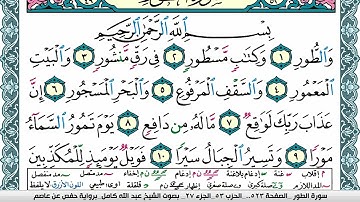 بِسْمِ ٱللَّهِ ٱلرَّحْمَٰنِ ٱلرَّحِيمِ
وَٱلطُّورِ ١ وَكِتَٰبٍ مَّسْطُورٍ ٢ فِى رَقٍّ مَّنشُورٍ ٣ وَٱلْبَيْتِ
ٱلْمَعْمُورِ ٤ وَٱلسَّقْفِ ٱلْمَرْفُوعِ ٥ وَٱلْبَحْرِ ٱلْمَسْجُورِ ٦ إِنَّ
عَذَابَ رَبِّكَ لَوَٰقِعٌ ٧ مَّا لَهُۥ مِن دَافِعٍ ٨ يَوْمَ تَمُورُ ٱلسَّمَآءُ
مَوْرًا ٩ وَتَسِيرُ ٱلْجِبَالُ سَيْرًا ١٠ فَوَيْلٌ يَوْمَئِذٍ لِّلْمُكَذِّبِينَ
سورة الطور . الصفحة ٥٢٣ .. الحزب ٥٣ . الجزء ٢٧ . بصوت الشيخ عبد الله كامل . برواية حفص عن عاصم